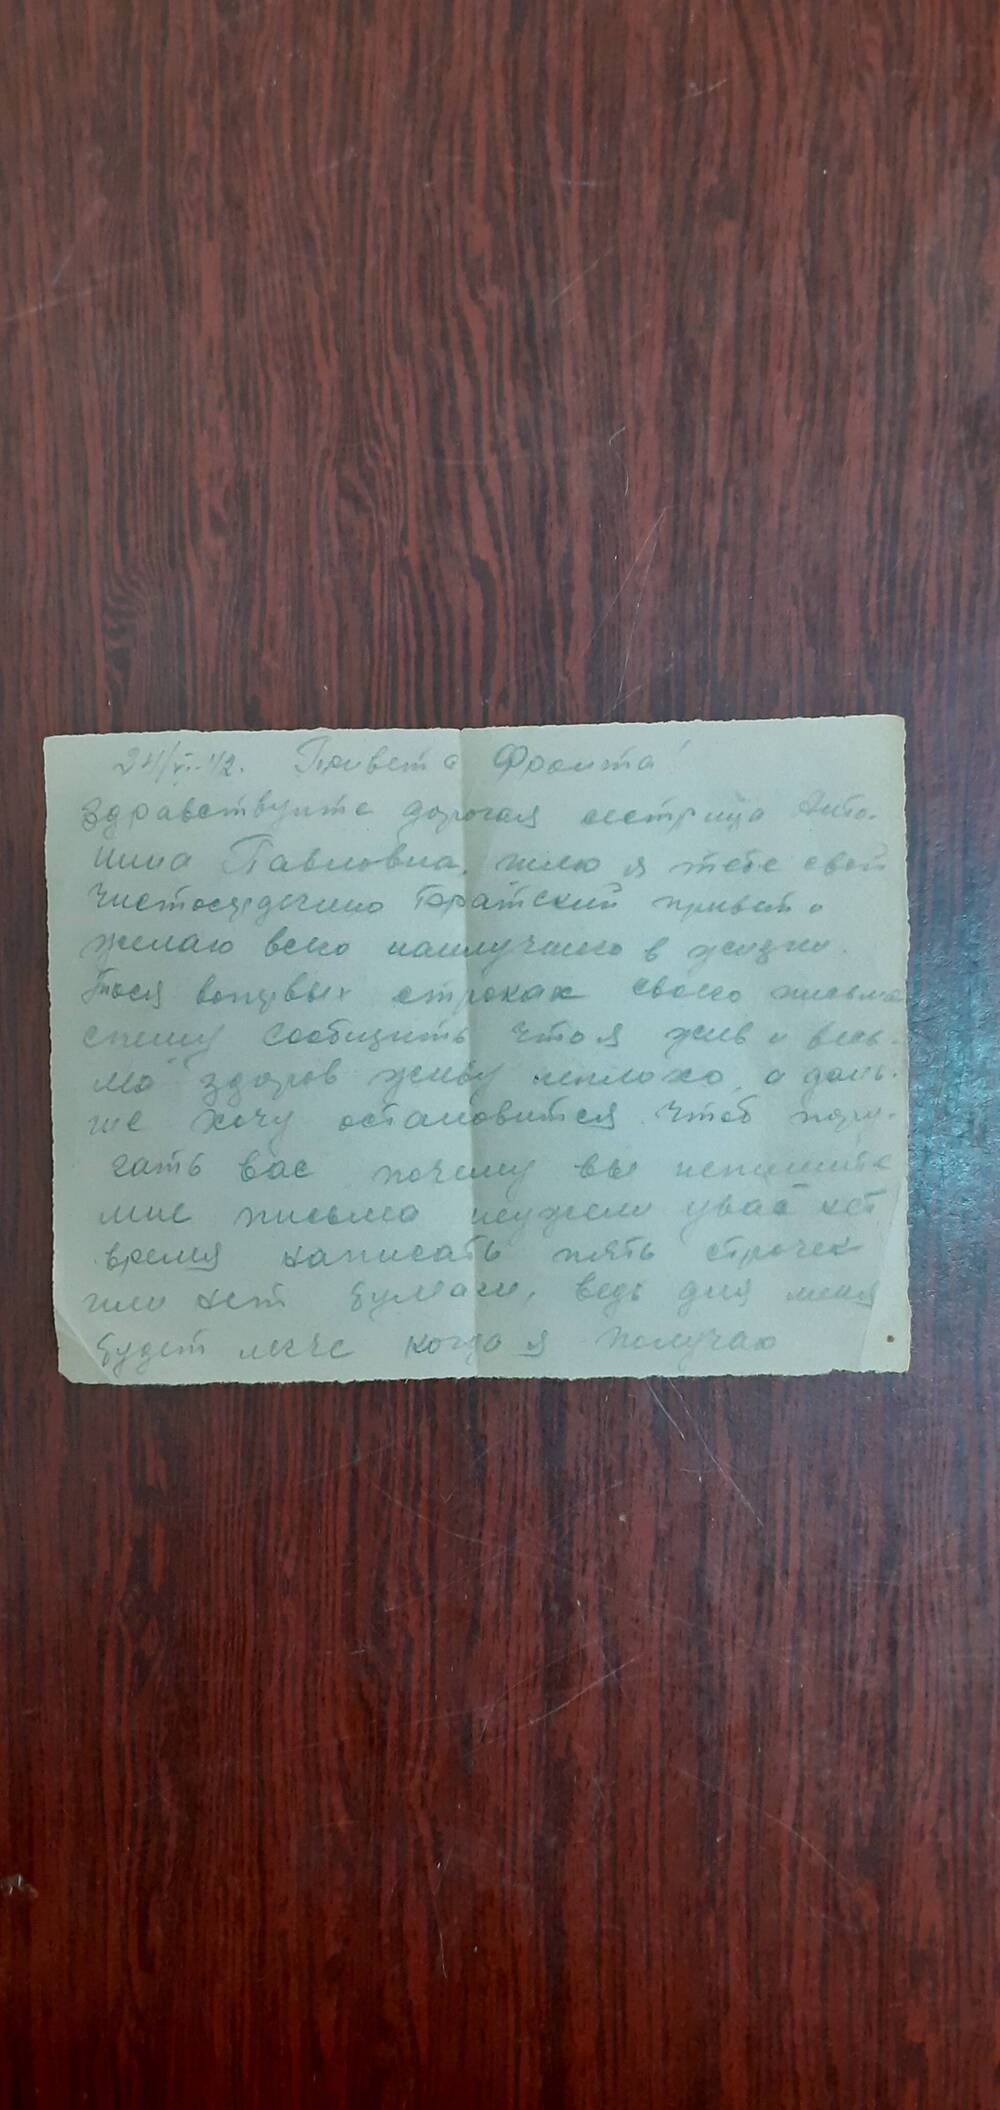 24/VI-42. Привет с Фронта!
Здравствуите дорогая сестрица Анто-
нина Павловна, шлю я тебе свой
чистосердечно братский привет и
желаю всего наилучшего в жизни.
Тося вопервых строках своего письма
спешу сообщить что я жив и весь-
ма здоров живу неплохо, а даль-
ше хочу остановится чтоб пору-
гать вас почему вы непишите
мне письма неужели увас нет
время написать пять строчек
или нет бумаги, ведь для меня
будет легче когда я получаю